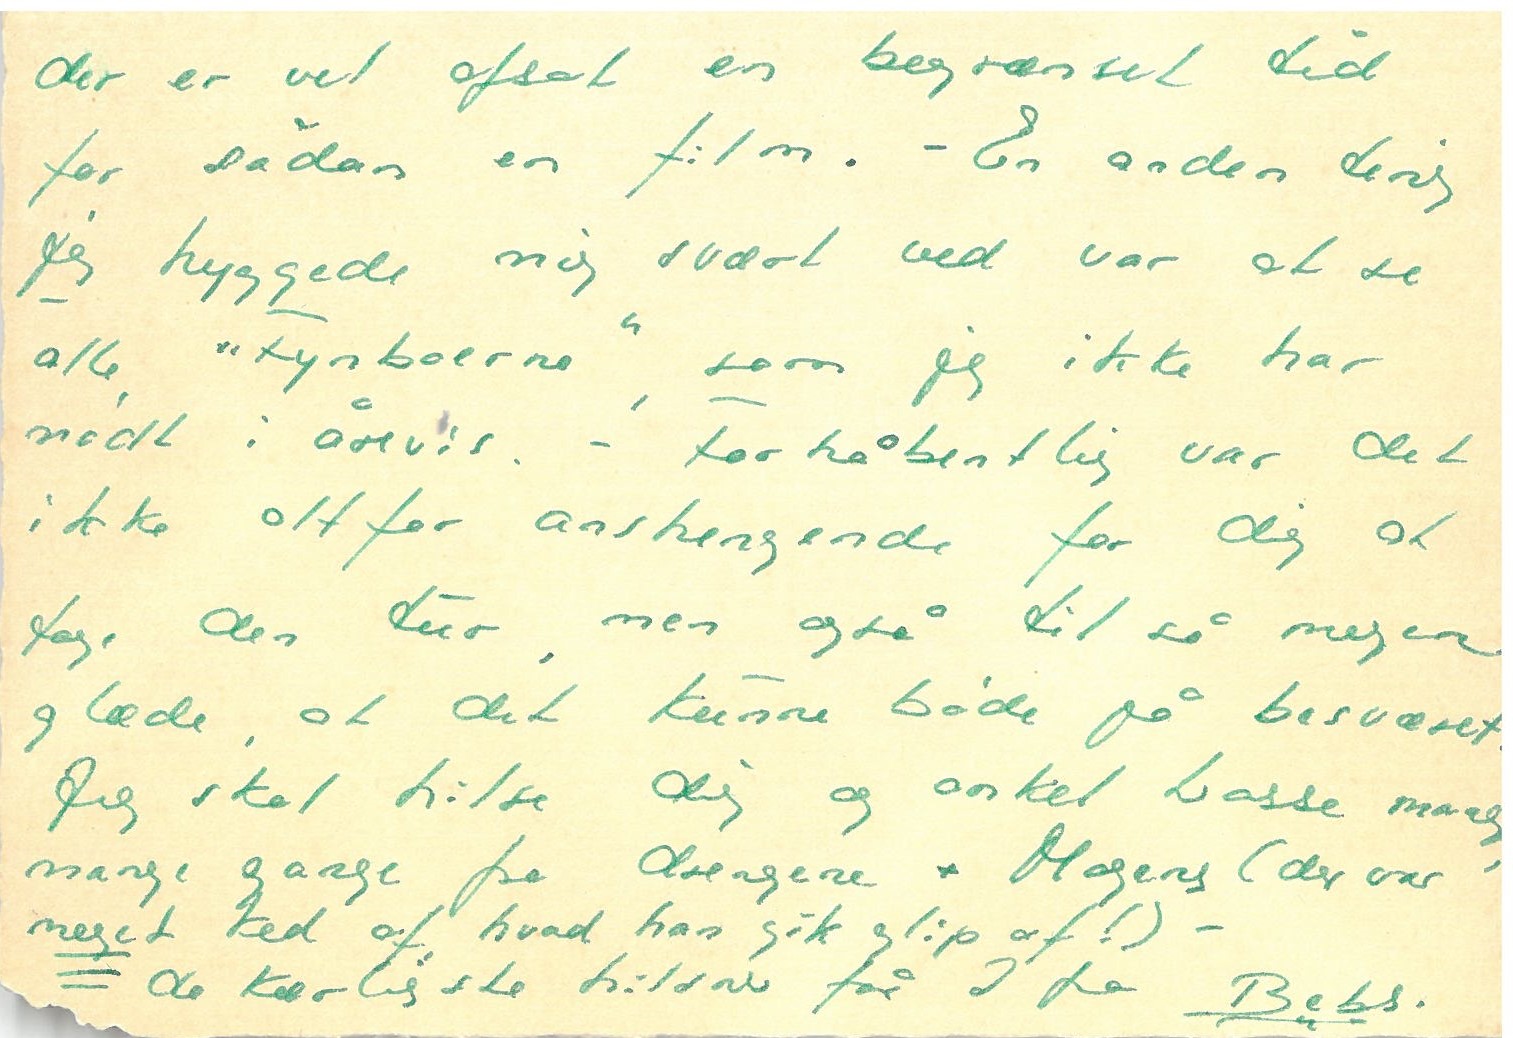 der er vel afsat en begrænset tid
for sådan en film. - Én anden ting
jeg hyggede mig svært ved var at se
alle "Fynboerne", som jeg ikke har
mødt i årevis. - Forhåbentlig var det
ikke altfor anstrengende for dig at
tage den tur, men også til så megen
glæde, at det kunne bøde på besværet.
Jeg skal hilse dig og onkel Lasse mange,
mange gange fra drengene + Mogens (der var
meget ked af, hvad han gik glip af!) -
de kærligste hilsner får I fra Bebs.